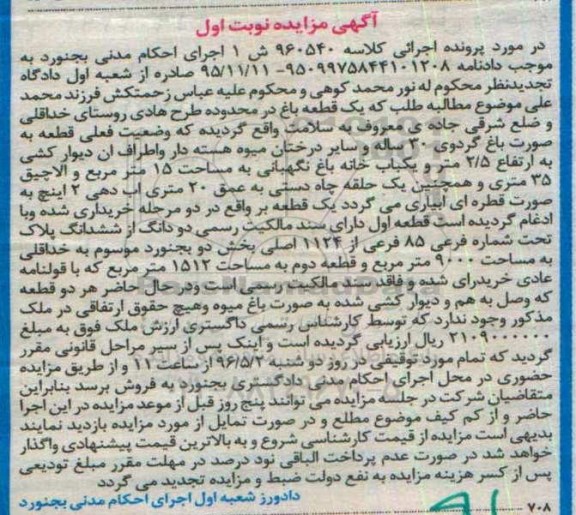 آگهی مزایده نوبت اول
در مورد پرونده اجرائی کلاسه ۹۶۰۵۴۰ ش ۱ اجرای احکام مدنی بجنورد به
موجب دادنامه ۹۵۰۹۹۷۵۸۴۴۱۰۱۲۰۸- ۹۵/۱۱/۱۱ صادره از شعبه اول دادگاه
تجدیدنظر محکوم له نور محمد کوهی و محکوم علیه عباس زحمتکش فرزند محمد
علی موضوع مطالبه طلب که یک قطعه باغ در محدوده طرح هادی روستای خداقلی
و ضلع شرقی جاده ی معروف به سلامت واقع گردیده که وضعیت فعلی قطعه به
صورت باغ گردوی ۲۰ ساله و سایر درختان میوه هسته دار واطراف ان دیوار کشی
به ارتفاع ۲/۵ متر و یکباب خانه باغ نگهبانی به مساحت ۱۵ متر مربع و الاچیق
۳۵ متری و همچنین یک حلقه چاه دستی به عمق ۲۰ متری اب دهی ۲ اینچ به
صورت قطره ای ابیاری می گردد یک قطعه بر واقع در دو مرحله خریداری شده وبا
ادغام گردیده است قطعه اول دارای سند مالکیت رسمی دو دانگ از ششدانگ پلاک
تحت شماره فرعی ۸۵ فرعی از ۱۱۲۴ اصلی بخش دو بجنورد موسوم به خداقلی
به مساحت ۹۰۰۰ متر مربع و قطعه دوم به مساحت ۱۵۱۲ متر مربع که با قولنامه
عادی خریدرای شده و فاقد سند مالکیت رسمی است ودر حال حاضر هر دو قطعه
که وصل به هم و دیوار کشی شده به صورت باغ میوه وهیچ حقوق ارتفاقی در ملک
مذکور وجود ندارد که توسط کارشناس رسمی داگستری ارزش ملک فوق به مبلغ
۲۱۰۹۰۰۰۰۰۰ ریال ارزیابی گردیده است و اینک پس از سیر مراحل قانونی مقرر
گردید که تمام مورد توقیفی در روز دو شنبه ۹۶/۵/۲ از ساعت ۱۱ و از طریق مزایده
حضوری در محل اجرای احکام مدنی دادگستری بجنورد به فروش برسد بنابراین
متقاضیان شرکت در جلسه مزایده می توانند پنج روز قبل از موعد مزایده در این اجرا
حاضر و از کم کیف موضوع مطلع و در صورت تمایل از مورد مزایده بازدید نمایند
بدیهی است مزایده از قیمت کارشناسی شروع و به بالاترین قیمت پیشنهادی واگذار
خواهد شد در صورت عدم پرداخت الباقی نود درصد در مهلت مقرر مبلغ تودیعی
پس از کسر هزینه مزایده به نفع دولت ضبط و مزایده تجدید می گردد
دادورز شعبه اول اجرای احکام مدنی بجنورد
۷۰۸